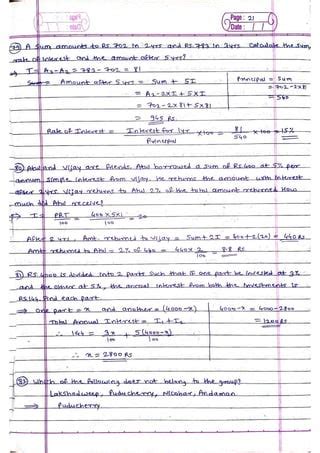 Page: 21
Date:
A sum amounts to RS.702 in 2yrs and RS.783 in 3yrs. Calculate the sum,
rate of interest and the amount after 5yrs?
⇒ I = A₃-A₂ > 783 - 702 = 81
Amount after 5yrs = Sum + 5I
= A₂ - 2XI + 5XI
= 702 - 2X81 + 5X81
= 945 RS.
Principal = Sum
= 702 - 2X81
= 540
Rate of Interest = Interest for 1yr X100 = 81 X 100 = 15%
Principal 540
30 and Vijay are friends. borrowed a sum of RS.400 at 5% per
annum simple interest from Vijay. He returns the amount with interest
after 2yrs. Vijay returns to 2% of the total amount returned. How
much did receive?
⇒ I = PRT = 400X5X1 = 20
100 100
After 2 yrs, Amt. returned to Vijay = Sum + 2I = 400 + 2(20) = 440 RS.
Amt returned to = 2% of 440 = 440 X 2 = 8.8 RS
100
31 RS.4000 is divided into 2 parts such that if one part be invested at 3%
and the other at 5%, the annual interest from both the investments is
RS.144. Find each part.
⇒ one part = x and another = (4000-x)
Total Annual Interest = I₁ + I₂
∴ 144 = 3x + 5(4000-x)
100 100
∴ x = 2800 RS
4000-x = 4000-2800
= 1200 RS
Which of the following does not belong to the group?
Lakshadweep, Puducherry, Nicobar, Andaman
⇒ Puducherry.